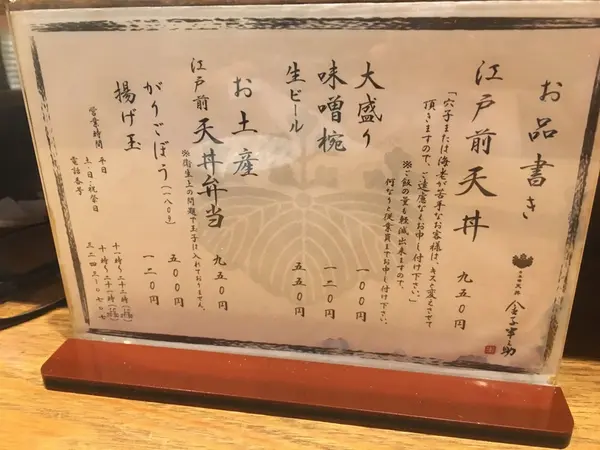 お品書き
江戸前天丼 九五〇円
「穴子または海老が苦手なお客様は、キスと変えさせて
頂きますので、ご遠慮なくお申し付け下さい。」
※ご飯の量も軽減出来ますので、
何なりと従業員までお申し付け下さい。
大盛り 一〇〇円
味噌椀 一二〇円
生ビール 五五〇円
お土産
江戸前 天丼弁当 九五〇円
※衛生上の問題で玉子は入れておりません。
がりごぼう(一八〇g) 五〇〇円
揚げ玉 一二〇円
営業時間 平日 十一時より二十二時
土・日・祝祭日 十時より二十一時
電話番号 三二四三ー〇七〇七
天丼 金子半之助